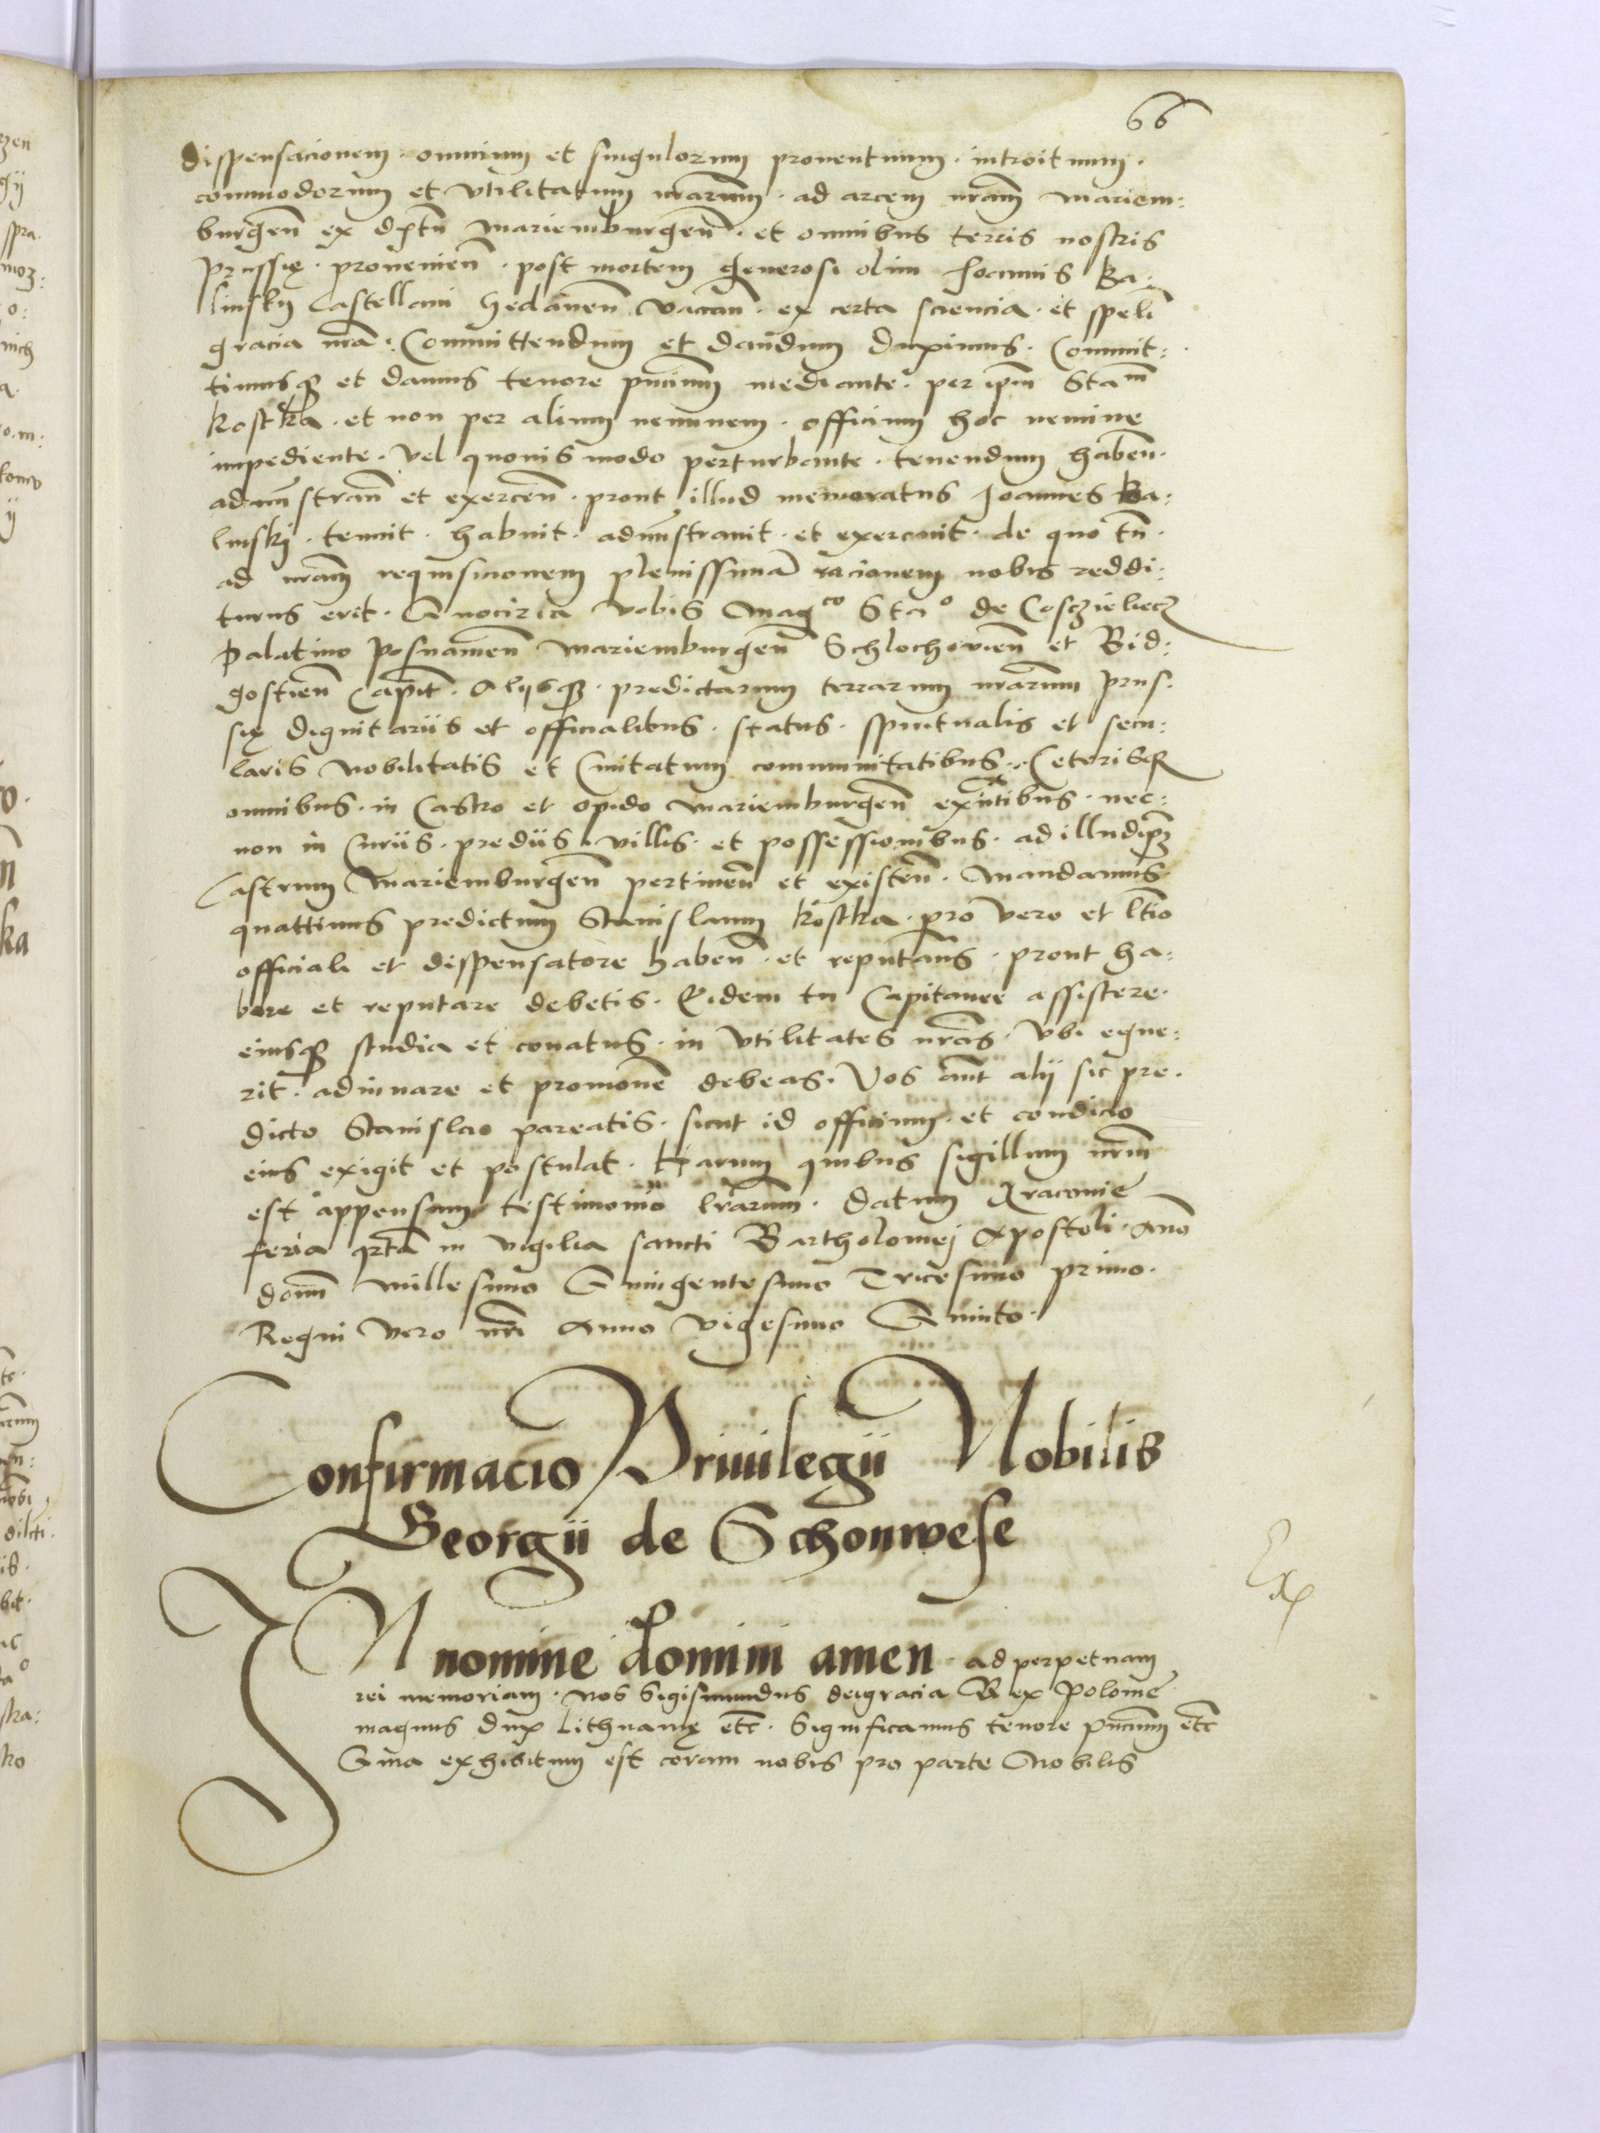 66
dispensacionem · omnium et singulorum prouentuum · introituum ·
commodorum et vtilitatum nrarum · ad arcem nram Mariem:
burgen̄ ex dystr̄ Mariemburgen̄ · et omnibus terris nostris
Prussię · prouenien̄ · post mortem Generosi olim Joannis Ba:
linsky Castellani Gedanen̄ vacan̄ · ex certa sciencia · et sp̄eli
gracia nr̄a · Committendum et dandum duximus · Commit:
timusq̨ et damus tenore pn̄cium mediante · per ip̄m Stam
Kostka · et non per alium neminem · officium hoc nemine
impediente · vel quouis modo perturbante · tenendum haben̄ ·
adm̄stran̄ et exercen̄ · prout illud memoratus Joannes Ba:
linskj · tenuit · habuit · adm̄strauit · et exercuit · de quo tn̄ ·
ad nram requisicionem plenissimā racionem nobis reddi:
turus erit · Quocirca vobis Magco Stao de Cosczielecz
Palatino Posnanien̄ Mariemburgen̄ Schlochouien̄ et Bid:
gostien̄ Capit̄ · Alijsq̨ · predictarum terrarum nrarum Prus:
się dignitariis et officialibus · status · sp̄ritualis et secu:
laris nobilitatis et Ciuitatum communitatibus · Ceterisq̨
omnibus · in Castro et opido Mariemburgen̄ exn̄tibus · nec:
non in Curiis · prediis · villis · et possessionibus · ad illud ip̄m
Castrum Mariemburgen̄ pertinen̄ et existen̄ · Mandamus
quattinus predictum Stanislaum Kostka · pro vero et lt̄io
officiali et dispensatore haben̄ · et reputan̄s · prout ha:
bere et reputare debetis · Eidem tu Capitanee assistere ·
eiusq̨ studia et conatus · in vtilitates nr̄as · vbi eque:
rit · adiuuare et promoue debeas · Vos aut̄ alij sic pre:
dicto Stanislao pareatis · sicut id officium · et condicio
eius exigit et postulat · Harum quibus sigillum nr̄m
est appensum testimonio lr̄arum · Datum Cracouie
feria qrta in vigilia sancti Bartholomej Apostoli · Ano
dom̄ Millesimo Quingentesimo Tricesimo primo ·
Regni vero nr̄i Anno vigesimo Quinto ·
Confirmacio Priuilegii Nobilis
Georgii de Schonwese
Ex
IN nomine domini amen · ad perpetuam
rei memoriam · Nos Sigismundus dei gracia Rex Polonie
magnus dux Lithuanię etc̄ · Significamus tenore pn̄cium etc̄
Quia exhibitum est coram nobis pro parte Nobilis